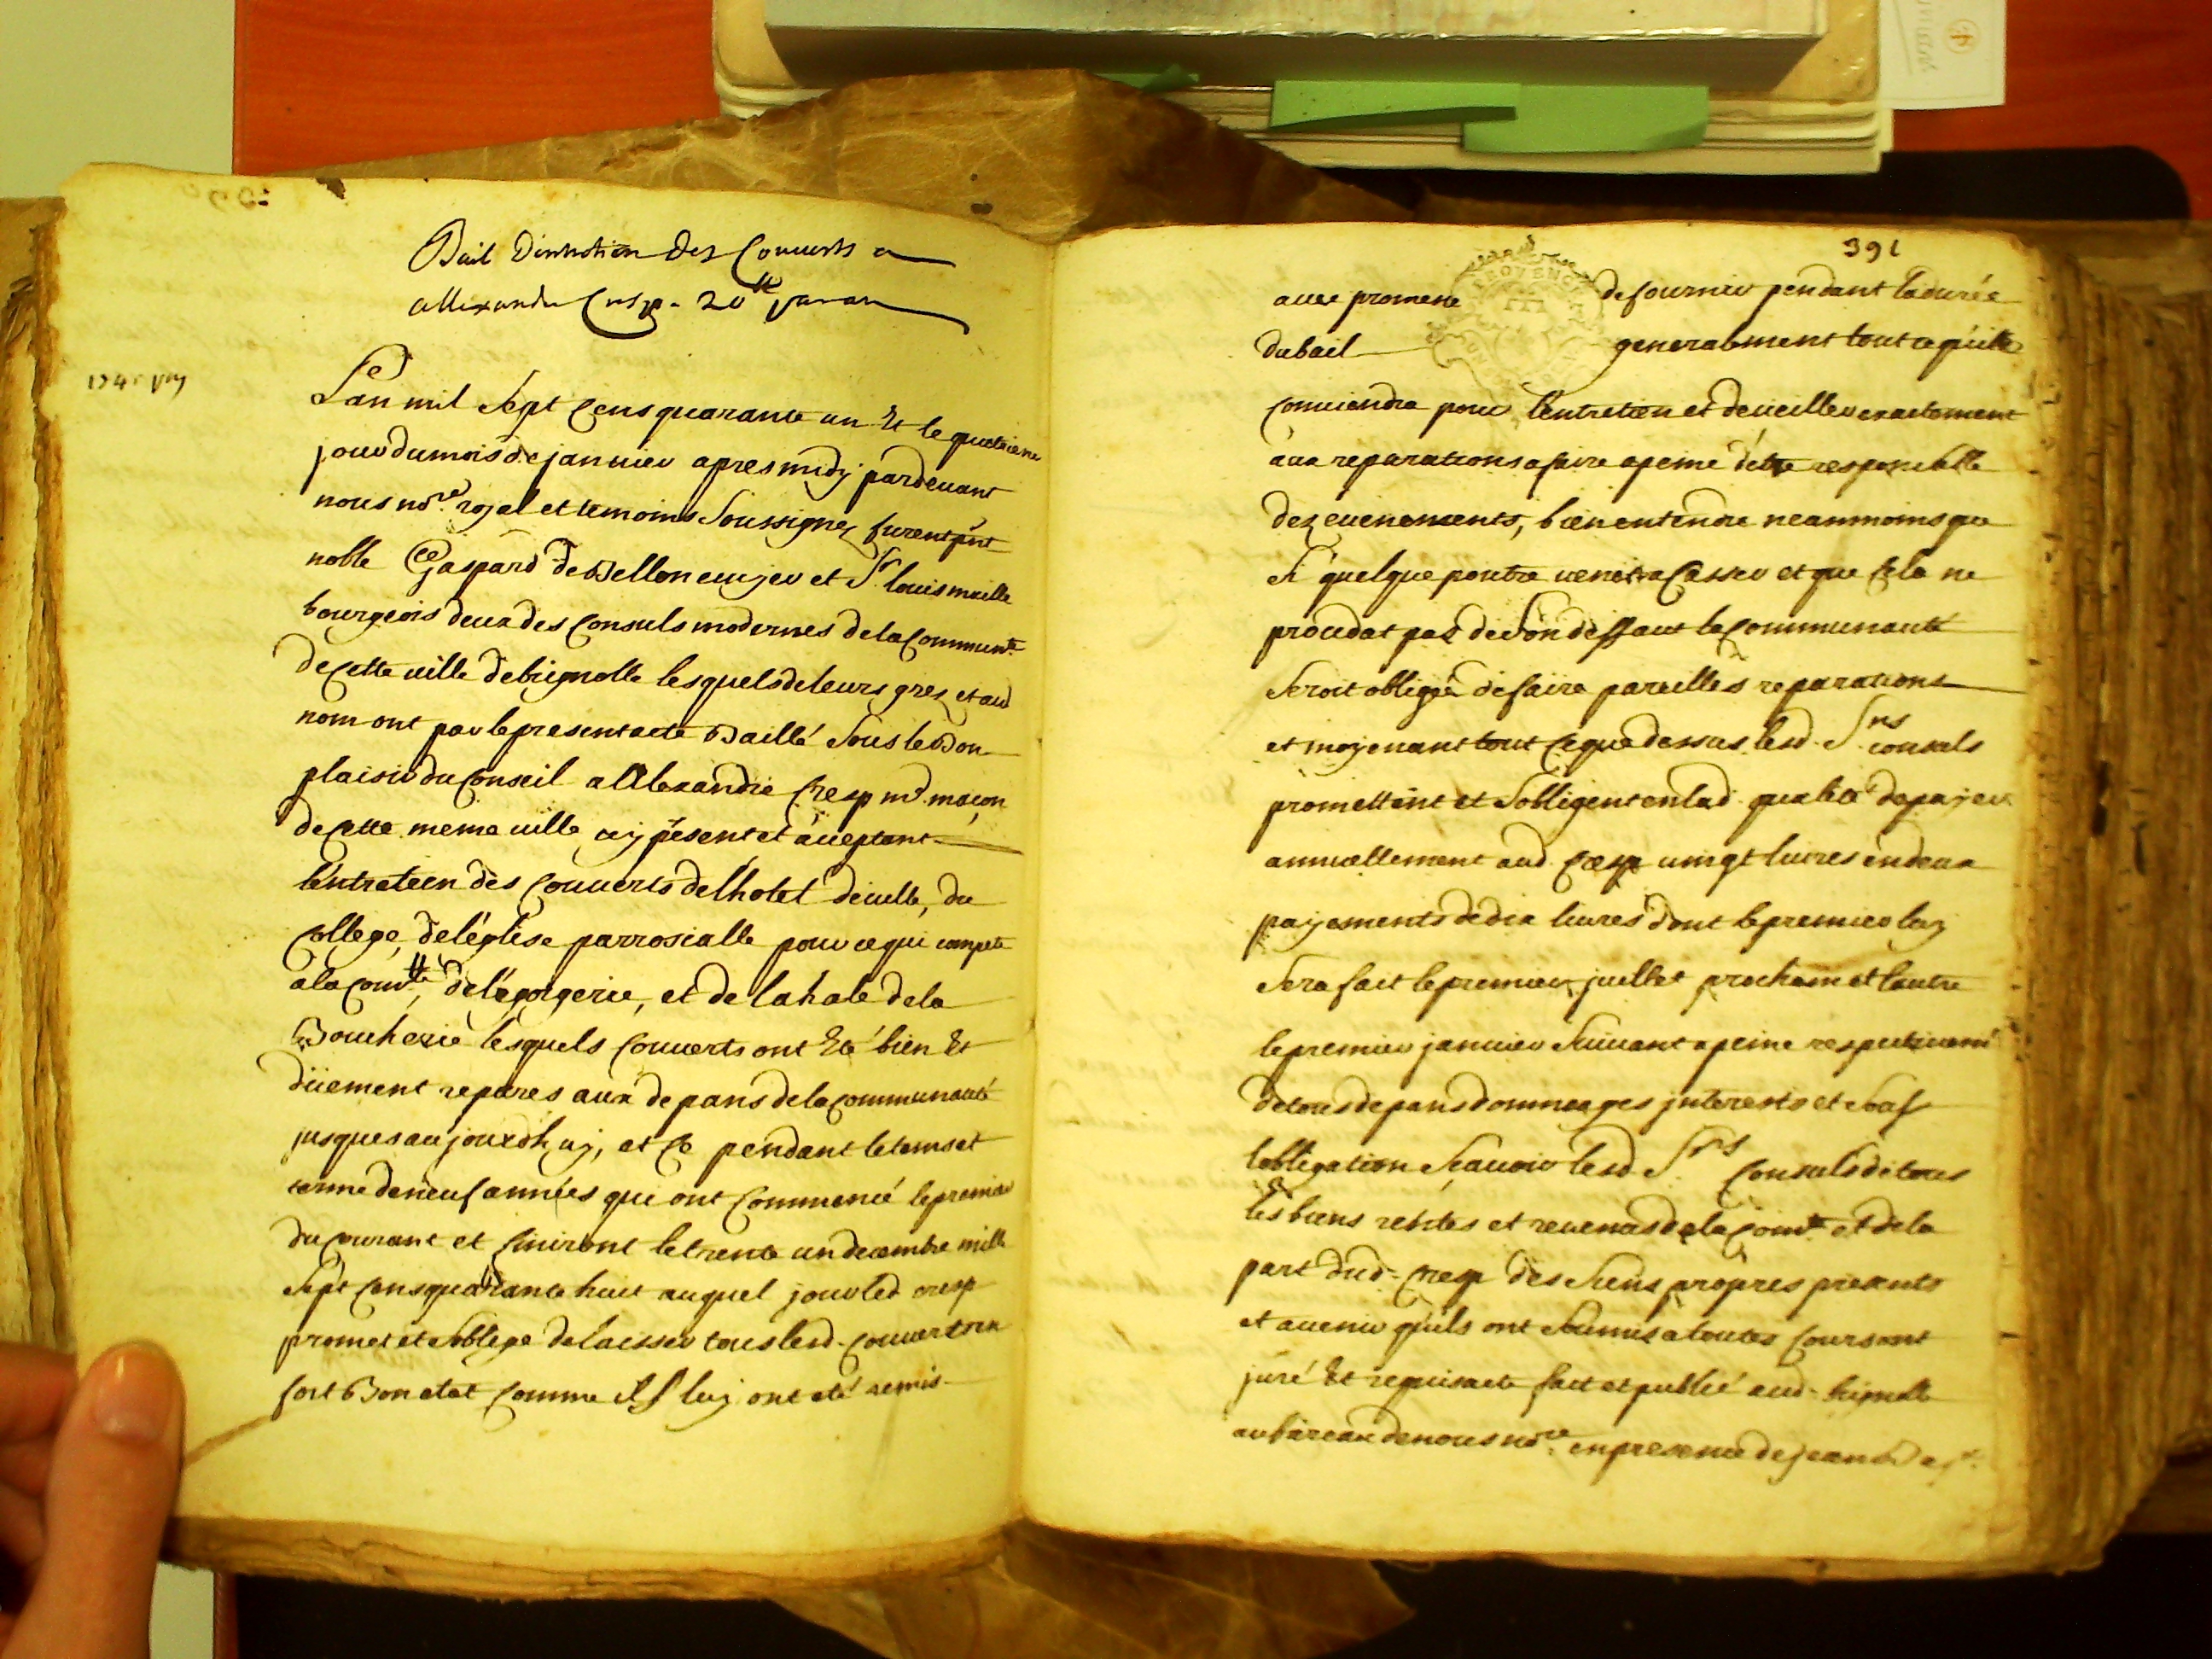 Bail D'entretien Des Couverts a
Allexandre Cresp - 20 ᵗᵗ par an
L'an mil sept cens quarante un Et le quatrieme
jour du mois de janvier apres midy pardevant
nous noʳᵉ royal et temoins soussignez furent pnt
noble Gaspard de Bellon ecuyer et Sʳ louis maille
bourgeois deux des consuls modernes de la Communᵗᵉ
de cette ville de brignolle lesquels de leurs grez et aud
nom ont par le present acte Baillé sous le Bon
plaisir du Conseil a Alexandre Cresp mᵉ maçon
de cette meme ville cy present et aceptant
l'entretien des Couverts de l'hotel de ville, du
College, de l'eglise parrosialle pour ce qui compete
a la comᵗᵉ, de l'egorgerie, et de la hale de la
Boucherie lesquels Couverts ont Eté bien Et
düement repares aux depans de la communauté
jusques aujourdhuy, et Ce pendant le tems et
terme de neuf années que ont Commencé le premier
du courant et finiront le trente un decembre mille
sept cens quarante huit auquel jour led cresp
promet et s'oblige de laisser tous lesd. couverts en
fort Bon etat Comme ils luy ont eté remis
391
avec promene de fournir pendant la durée
du bail generalement tout ce qu'il
conviendra pour l'entretien et de veiller exactement
aux reparations a faire a peine d'etre responsable
dez evenements, bien entendu neanmoins que
si quelque poutre venet a Casser et que Cela ne
proudat pas de son deffaut la Communauté
seroit obligée de faire pareilles reparations
et moyenant tout Ce que dessus lesd. Sʳˢ consuls
promettent et s'obligent en lad. qualité de payer
annuellement aud. Cresp vingt livres en deux
payements de dix livres dont le premier luy
sera fait le premier juillet prochain et l'autre
le premier janvier suivant a peine respectivemᵗ
de tous depans dommages interests et sous
l'obligation sçavoir lesd. Sʳˢ Consuls de tous
les biens rentes et revenus de la comᵗᵉ et de la
part dud. Cresp des siens propres presents
et avenir qu'ils ont soumis a toutes Cours ont
juré Et requis acte fait et publié aud. brignolle
au bureau de nous noʳᵉ en presence de jean